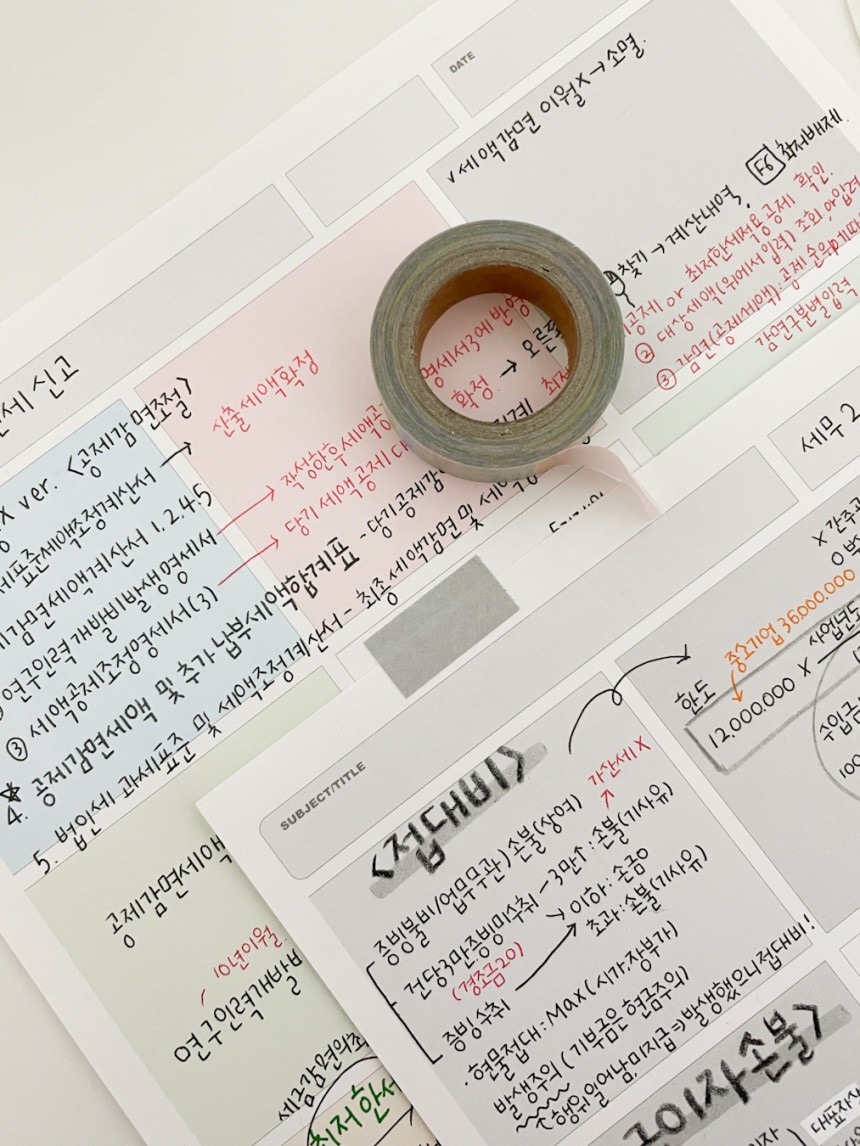 DATE
✓세액감면 이월X→소멸.
찾기→계산내역,
F6 최저배제
공제 or 최저한세적용공제 확인.
② 대상세액(위에서 입력) 조회, 입력
③ 감면(공제세액): 공제 순위에따
감면구분별입력
세신고
산출세액확정
작성한후세액공
영세서3에 반영
당기 세액공제 대
확정 → 오른쪽
X ver. <공제감면조절>
세표준세액조정계산서 →
감면세액계산서 1.2.4.5
연구인력개발비발생명세서
③ 세액공제조정명세서(3)
4. 공제감면세액 및 추가납부세액합계표 - 당기공제감
5. 법인세 과세표준 및 세액조정계산서 - 최종세액감면 및 세액공
공제감면세액
10년이월
연구인력개발
세금감면의
최저한세
SUBJECT/TITLE
<접대비>
가산세X
증빙불비/업무무관) 손불(상여)
건당3만증빙미수취 - 3만↑: 손불(기사유)
(경조금20)
이하: 손금O
초과: 손불(기사유)
증빙수취
·현물접대: Max(시가,장부가)
발생주의(기부금은 현금주의)
행위일어남.미지급⇒발생했으니접대비!
세무 2
X 간주
중소기업 36.000.000
한도
12.000.000 X
사업연도
수입금
100
지이자손불>
대표자상